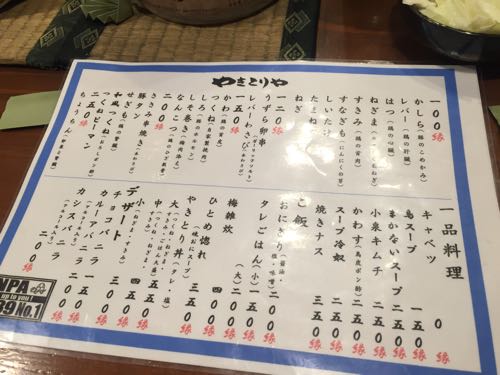 やきとりや
一〇〇縁
かしら(豚のこめかみ)
レバー(鶏の肝臓)
はつ(鶏の心臓)
ねぎま
すなぎも
しいたけ
たまねぎ
ねぎ
一二〇縁
うずら卵串
レバーわさび
一五〇縁
かわ
つくね
しろ
しそ巻き
なんこつ
二〇〇縁
ささみ串焼き
豚タン
せぎも
和風つくね
つくねピーマン
二五〇縁
ちょうちん
一品料理
キャベツ 〇縁
鳥スープ 一五〇縁
まかないスープ 二五〇縁
小泉キムチ 二五〇縁
かわす(鳥皮ポン酢) 二五〇縁
スープ冷奴 三五〇縁
焼きナス 三五〇縁
ご飯
おにぎり(醤油・塩・味噌) 二〇〇縁
タレごはん(小) 二〇〇縁
(大) 三〇〇縁
梅雑炊 三〇〇縁
ひとめ惚れ 四〇〇縁
やきとり丼(タレ・塩)
大
中
小
デザート
チョコバニラ
カルーアバニラ
カシスバニラ 二〇〇縁
NPA
up to you!
No.1